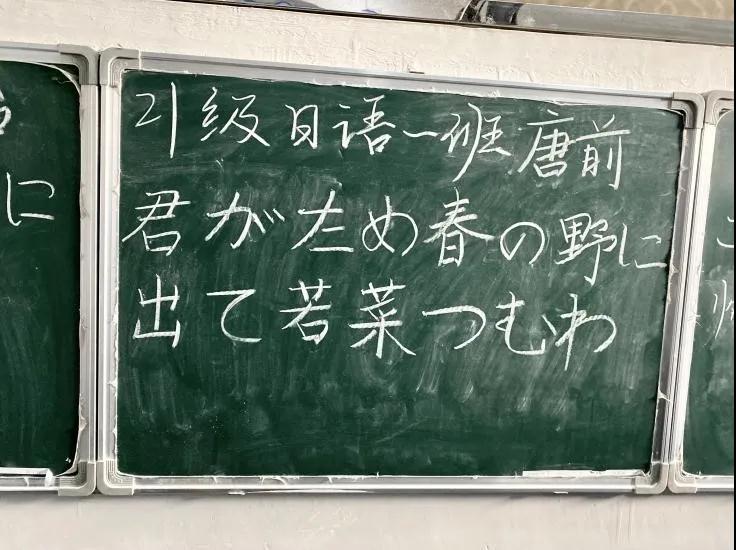 21级日语一班唐前
君がため春の野に
出て若菜つむわ
に